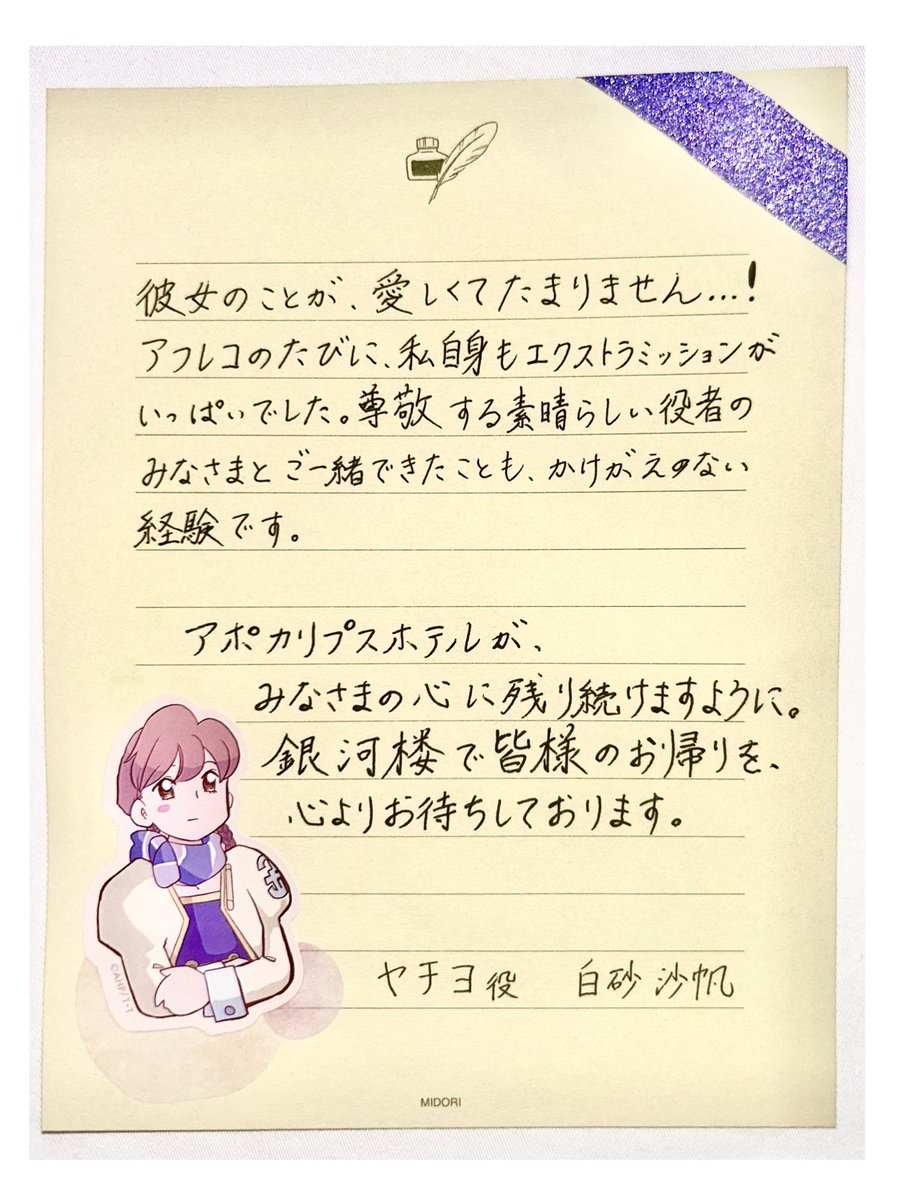 彼女のことが、愛しくてたまりません…!
アフレコのたびに、私自身もエクストラミッションが
いっぱいでした。尊敬する素晴らしい役者の
みなさまとご一緒できたことも、かけがえのない
経験です。
アポカリプスホテルが、
みなさまの心に残り続けますように。
銀河楼で皆様のお帰りを、
心よりお待ちしております。
ヤチヨ役 白砂沙帆
©AHP/1・1
MIDORI